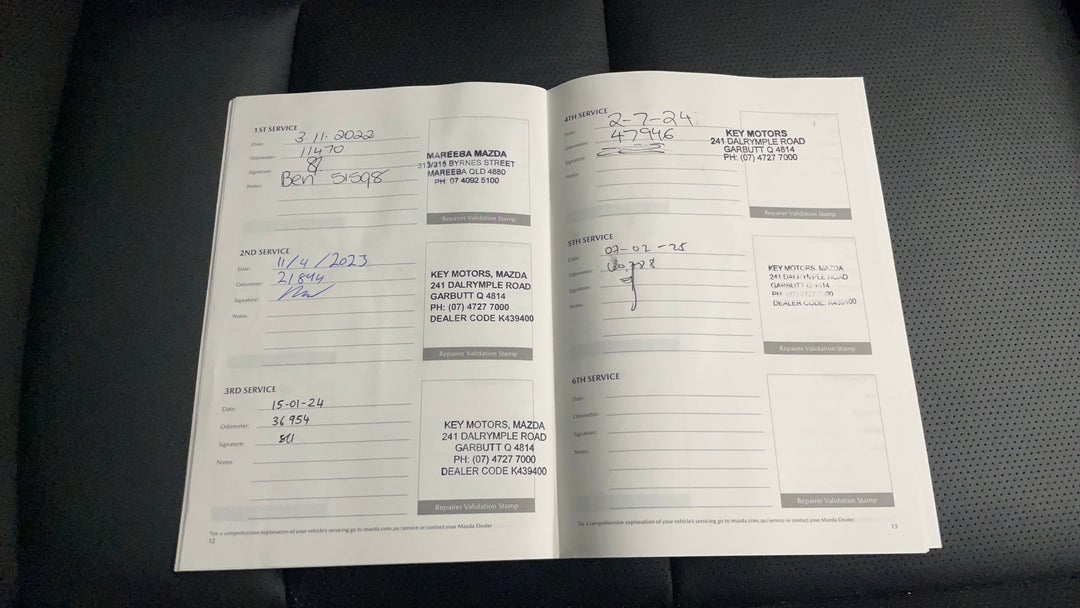 1ST SERVICE
Date: 3.11.2022
Odometer: 11470
Signature:
Notes: Ben 51598
MAREEBA MAZDA
313/315 BYRNES STREET
MAREEBA QLD 4880
PH: 07 4092 5100
Repairer Validation Stamp
2ND SERVICE
Date: 11/4/2023
Odometer: 21894
Signature:
Notes:
KEY MOTORS, MAZDA
241 DALRYMPLE ROAD
GARBUTT Q 4814
PH: (07) 4727 7000
DEALER CODE K439400
Repairer Validation Stamp
3RD SERVICE
Date: 15-01-24
Odometer: 36954
Signature:
Notes:
KEY MOTORS, MAZDA
241 DALRYMPLE ROAD
GARBUTT Q 4814
PH: (07) 4727 7000
DEALER CODE K439400
Repairer Validation Stamp
*For a comprehensive explanation of your vehicle's servicing go to mazda.com.au/service or contact your Mazda Dealer
12
4TH SERVICE
Date: 2-7-24
Odometer: 47946
Signature:
Notes:
KEY MOTORS
241 DALRYMPLE ROAD
GARBUTT Q 4814
PH: (07) 4727 7000
Repairer Validation Stamp
5TH SERVICE
Date: 07-02-25
Odometer:
Signature:
Notes:
KEY MOTORS, MAZDA
241 DALRYMPLE ROAD
GARBUTT Q 4814
PH: (07) 4727 7000
DEALER CODE K439400
Repairer Validation Stamp
6TH SERVICE
Date:
Odometer:
Signature:
Notes:
Repairer Validation Stamp
*For a comprehensive explanation of your vehicle's servicing go to mazda.com.au/service or contact your Mazda Dealer
13